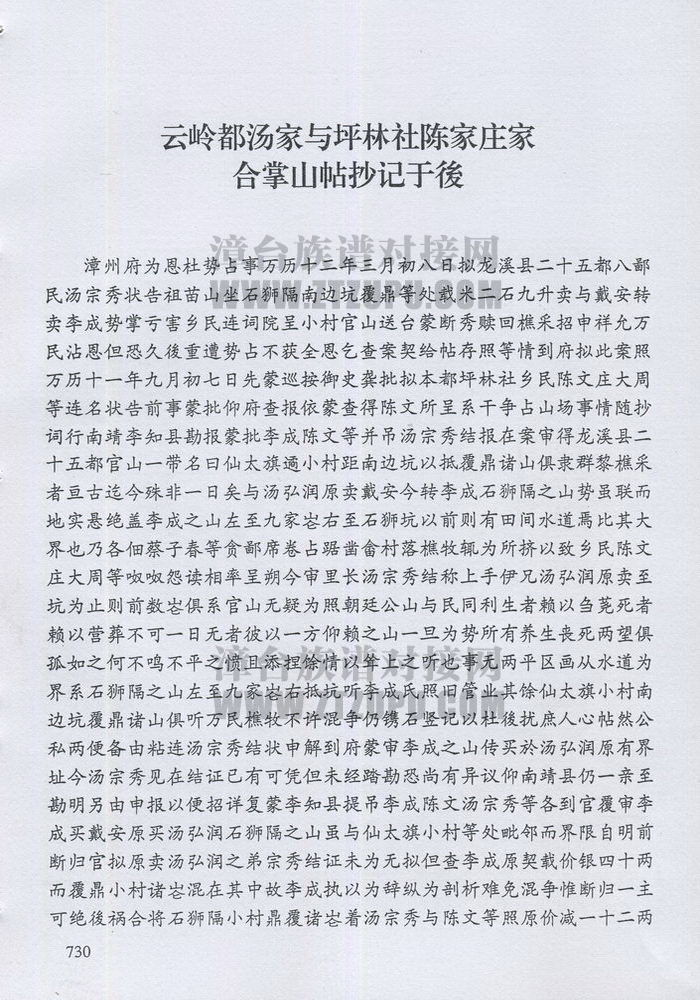 云岭都汤家与坪林社陈家庄家
合掌山帖抄记于後
漳州府为恩杜势占事万历十三年三月初八日拟龙溪县二十五都八鄙
民汤宗秀状告祖苗山坐石狮隔南边坑覆鼎等处载米二石九升卖与戴安转
卖李成势掌亏害乡民连词院呈小村官山送台蒙断秀赎回樵采招申祥允万
民沾恩但恐久後重遭势占不获全恩乞查案契给帖存照等情到府拟此案照
万历十一年九月初七日先蒙巡按御史龚批拟本都坪林社乡民陈文庄大周
等连名状告前事蒙批仰府查报依蒙查得陈文所呈系干争占山场事情随抄
词行南靖李知县勘报蒙批李成陈文等并吊汤宗秀结报在案审得龙溪县二
十五都官山一带名曰仙太旗過小村距南边坑以抵覆鼎诸山俱隶群黎樵采
者亘古迄今殊非一日矣与汤弘润原卖戴安今转李成石狮隔之山势虽联而
地实悬绝盖李成之山左至九家峃右至石狮坑以前则有田间水道焉比其大
界也乃各佃蔡子春等贪鄙席卷占踞凿畲村落樵牧辄为所挤以致乡民陈文
庄大周等呶呶怨读相率呈朔今审里长汤宗秀结称上手伊兄汤弘润原卖至
坑为止则前数峃俱系官山无疑为照朝廷公山与民同利生者赖以刍荛死者
赖以营葬不可一日无者彼以一方仰赖之山一旦为势所有养生丧死两望俱
孤如之何不鸣不平之愤且添捏馀情以耸上之听也事无两平区画从水道为
界系石狮隔之山左至九家峃右抵坑听李成氏照旧管业其馀仙太旗小村南
边坑覆鼎诸山俱听万民樵牧不许混争仍镌石竖记以杜後扰庶人心帖然公
私两便备由粘连汤宗秀结状申解到府蒙审李成之山传买於汤弘润原有界
址今汤宗秀见在结证已有可凭但未经踏勘恐尚有异议仰南靖县仍一亲至
勘明另由申报以便招详复蒙李知县提吊李成陈文汤宗秀等各到官覆审李
成买戴安原买汤弘润石狮隔之山虽与仙太旗小村等处毗邻而界限自明前
断归官拟原卖汤弘润之弟宗秀结证未为无拟但查李成原契载价银四十两
而覆鼎小村诸峃混在其中故李成执以为辞纵为剖析难免混争惟断归一主
可绝後祸合将石狮隔小村鼎覆诸峃着汤宗秀与陈文等照原价减一十二两
730
漳台族谱对接网
WWW.ZTZUPU.COM
漳台族谱对接网
WWW.ZTZUPU.COM